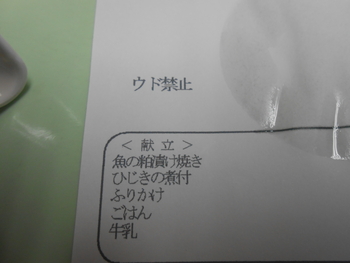 ウド禁止
＜ 献 立 ＞
魚の粕漬け焼き
ひじきの煮付
ふりかけ
ごはん
牛乳